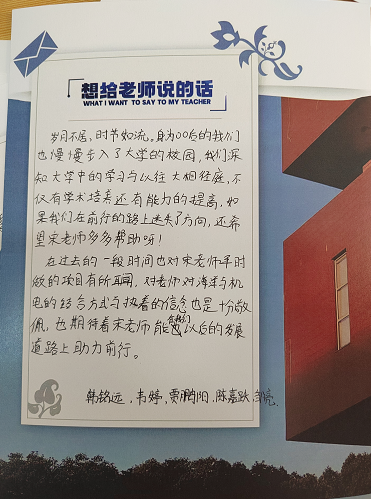 想给老师说的话
WHAT I WANT TO SAY TO MY TEACHER
岁月不居，时节如流。身为00后的我们
也慢慢步入了大学的校园，我们深
知大学中的学习与以往大相径庭，不
仅有学术培养还有能力的提高，如
果我们在前行的路上迷失了方向，还希
望宋老师多多帮助呀！
在过去的一段时间也对宋老师平时
做的项目有所耳闻，对老师对海洋与机
电的结合方式与执着的信念也是十分敬
佩，也期待着宋老师能在我们以后的发展
道路上助力前行。
韩铭远，韦婷，贾鹏阳，陈嘉跃